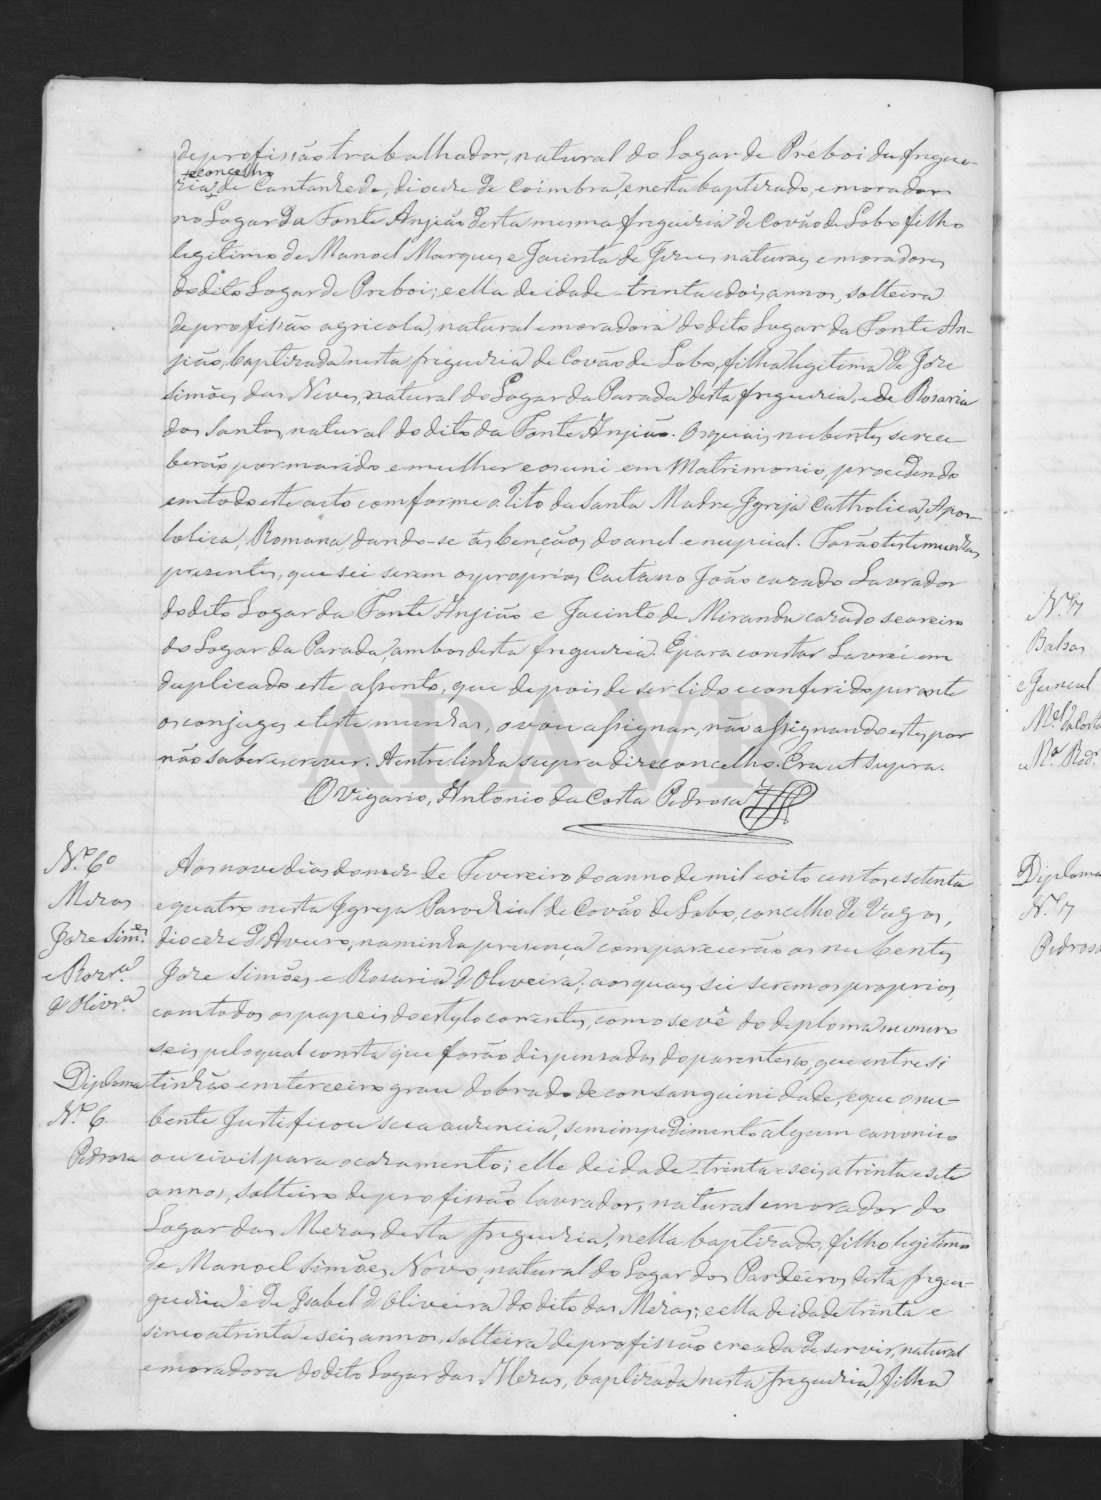 de profissão trabalhador, natural do Logar de Preboi da fregue-
concelho
zia, de Cantanhede, diocese de Coimbra, e nesta baptizado, e morador
no Logar da Fonte Anjião desta mesma freguezia de Covão de Lobo filho
legitimo de Manoel Marques e Jacinta de Jezus naturaes e moradores
do dito Logar de Preboi; e ella de idade trinta e dois annos, solteira
de profissão agricola, natural e moradora do dito Lugar da Fonte An-
jião, baptizada nesta freguezia de Covão de Lobo, filha legitima de Joze
Simões das Neves, natural do Logar da Parada desta freguezia, e de Rosaria
dos Santos, natural do dito da Fonte Anjião. Os quais nubentes se rece-
berão por marido e mulher e os uni em Matrimonio, procedendo
em todo este acto comforme o Rito da Santa Madre Igreja Catholica, Apos-
tolica, Romana, dando-se as bençãos do anel e nupcial. Forão testemunhas
presentes, que sei serem os proprios Caetano João cazado Lavrador
do dito Logar da Fonte Anjião e Jacinto de Miranda cazado seareiro
do Logar da Parada, ambos desta freguezia. E para constar Lavrei em
duplicado este assento, que depois de ser lido e conferido perante
os conjuges e testemunhas, o vou assignar, não assignando estes por
não saber escrever. A entrelinha supra diz = concelho. Era ut supra.
O Vigario, Antonio da Costa Pedrosa
N.º 6º
Mezas
Joze Sim.es
e Roza.ria
d'Olivr.a
Diploma
N.º 6.
Pedrosa
Aos nove dias do mez de Fevereiro do anno de mil e oito centos e setenta
e quatro nesta Igreja Parochial de Covão de Lobo, concelho de Vagos,
diocese d'Aveiro, na minha presença comparecerão os nubentes
Joze Simões e Rosaria d'Oliveira; aos quaes sei serem os proprios
com todos os papeis do estylo correntes, como se vê do deploma numero
seis, pelo qual consta que forão dispensados do parentesco, que entre si
tinhão em terceiro grau dobrado de consanguinidade, e que o nu-
bente Justificou sua auzencia, sem impedimento algum canonico
ou civil para o cazamento; elle de idade trinta e seis a trinta e sete
annos, solteiro de profissão lavrador, natural e morador do
Logar das Mezas desta freguezia, nella baptizado, filho legitimo
de Manoel Simões Novo, natural do Logar dos Pardeiros desta fregue-
guezia e de Izabel d'Oliveira do dito das Mezas; e ella de idade trinta e
sinco a trinta e seis annos, solteira de profissão creada de servir, natural
e moradora do dito Logar das Mezas, baptizada nesta freguezia, filha
N.º 7
Balsas
e Juncal
M.el da Costa
Diploma
N.º 7
Pedrosa
ADAVR